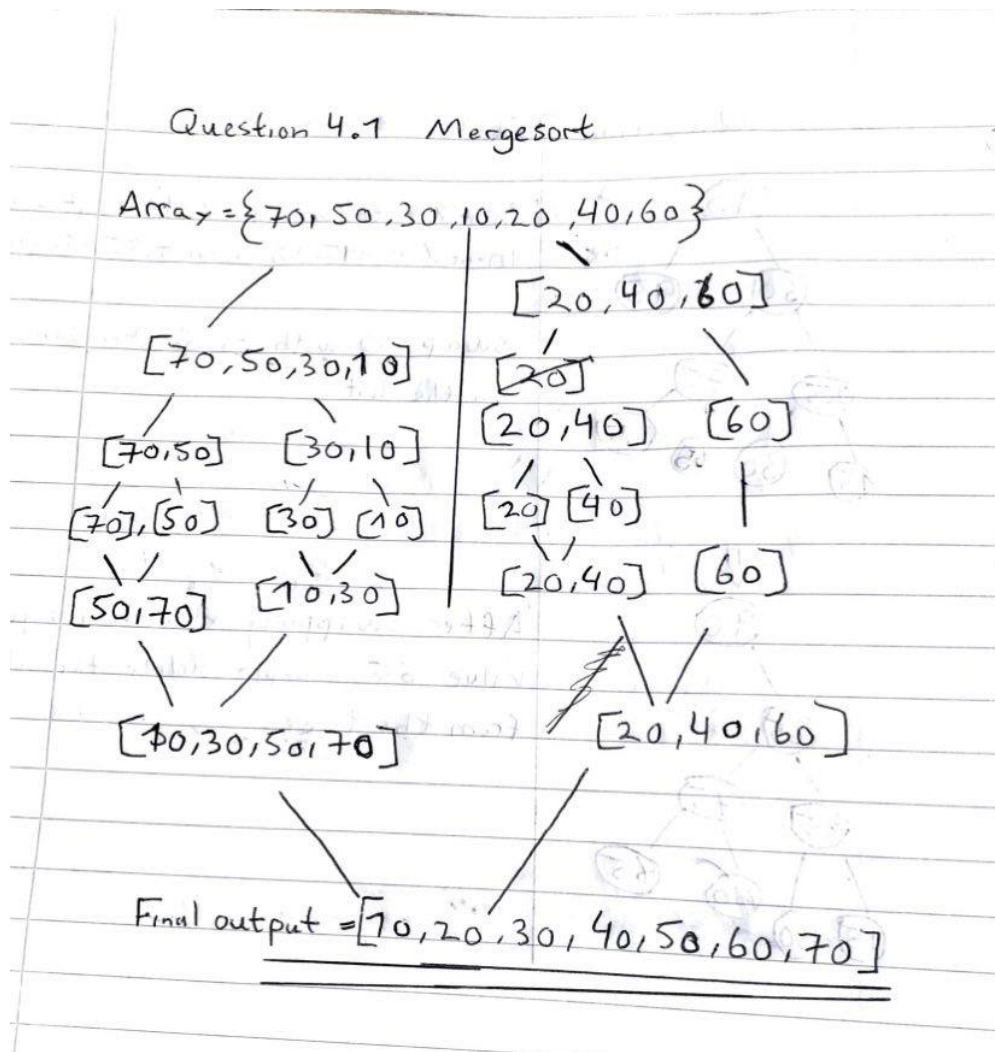 Question 4.1 Mergesort
Array = {70, 50, 30, 10, 20, 40, 60}
[20, 40, 60]
[70, 50, 30, 10]
[20]
[20, 40] [60]
[70, 50] [30, 10]
[70], [50] [30] [10] [20] [40]
[50, 70] [10, 30] [20, 40] [60]
[10, 30, 50, 70] [20, 40, 60]
Final output = [10, 20, 30, 40, 50, 60, 70]